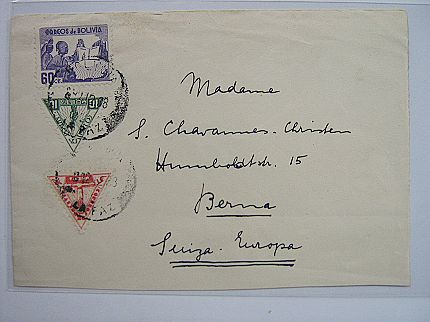 CORREOS de BOLIVIA
60
LA PAZ
LA PAZ
Madame
S. Chavannes-Christen
Humboldtstr. 15
Berna
Suiza-Europa